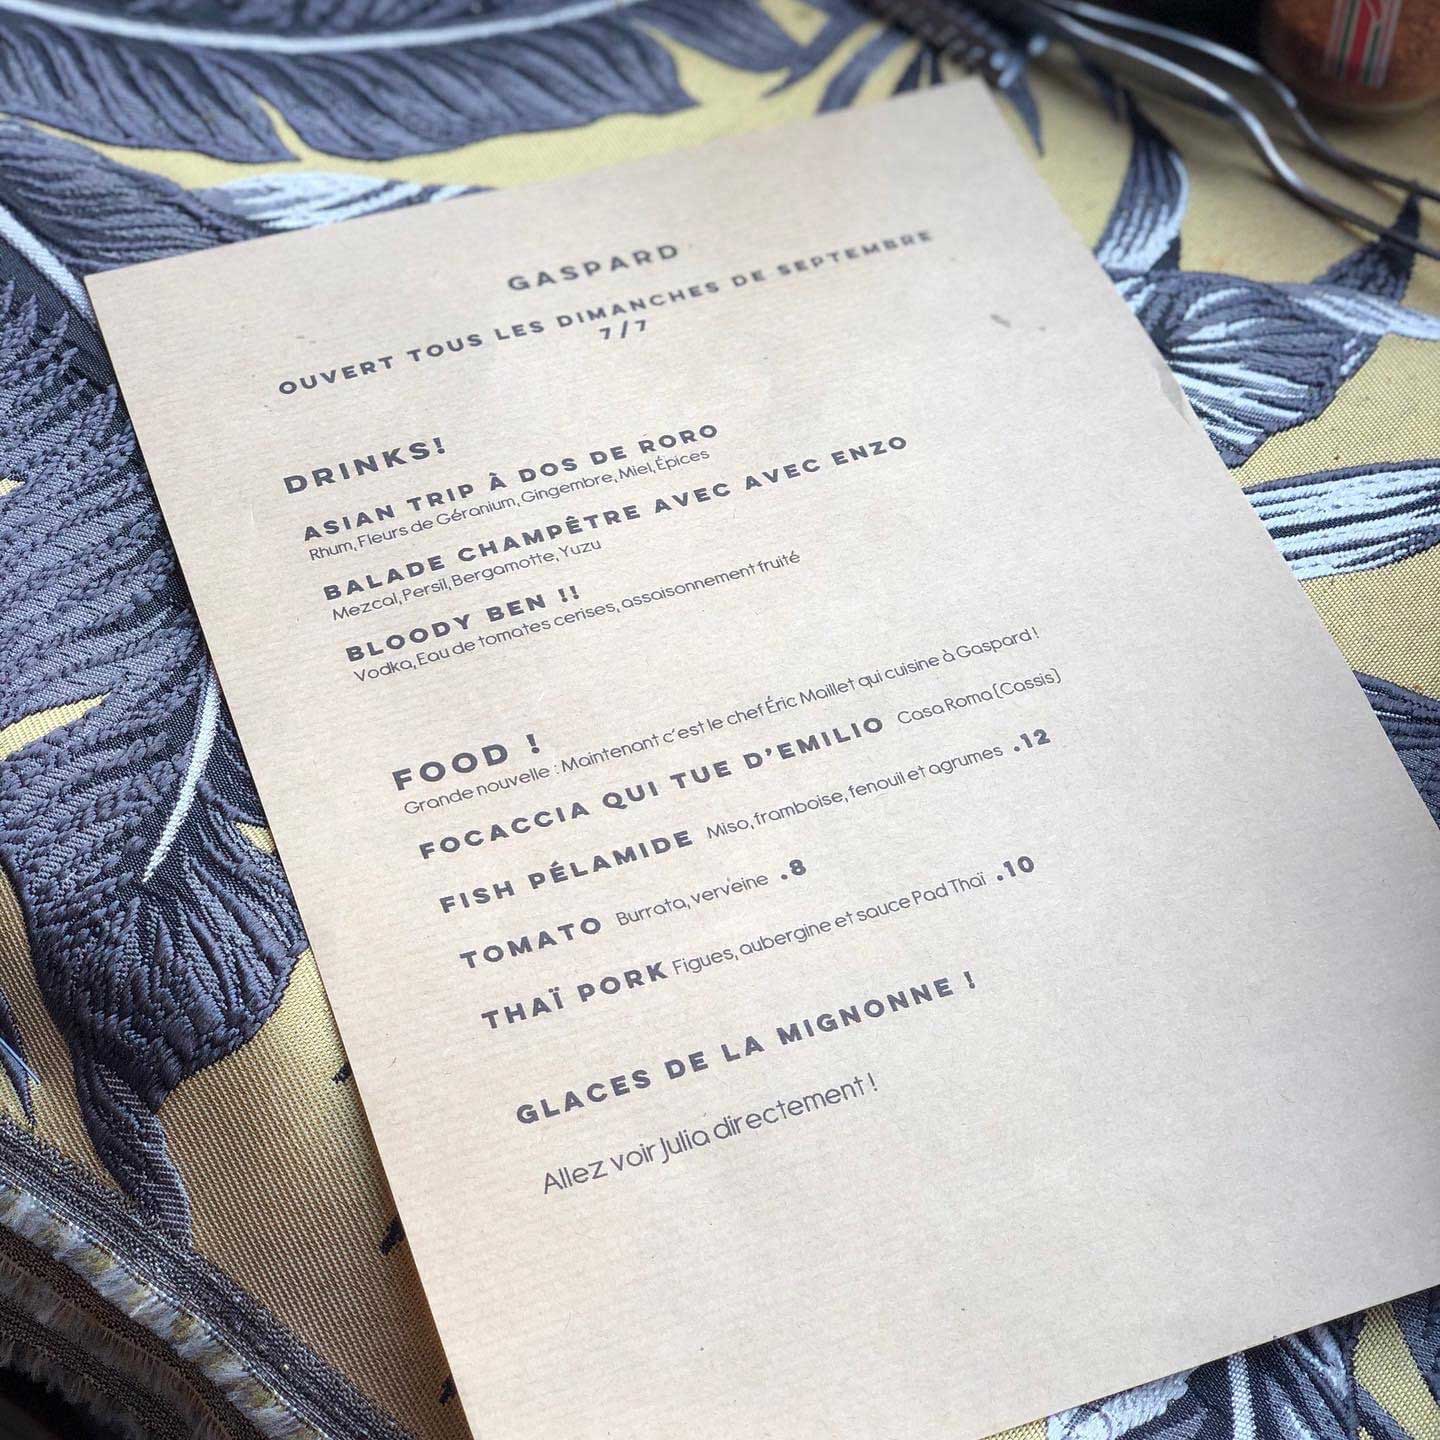 GASPARD
OUVERT TOUS LES DIMANCHES DE SEPTEMBRE
7/7
DRINKS!
ASIAN TRIP À DOS DE RORO
Rhum, Fleurs de Géranium, Gingembre, Miel, Épices
BALADE CHAMPÊTRE AVEC AVEC ENZO
Mezcal, Persil, Bergamotte, Yuzu
BLOODY BEN !!
Vodka, Eau de tomates cerises, assaisonnement fruité
FOOD !
Grande nouvelle : Maintenant c'est le chef Éric Maillet qui cuisine à Gaspard !
FOCACCIA QUI TUE D'EMILIO Casa Roma (Cassis)
FISH PÉLAMIDE Miso, framboise, fenouil et agrumes .12
TOMATO Burrata, verveine .8
THAÏ PORK Figues, aubergine et sauce Pad Thaï .10
GLACES DE LA MIGNONNE !
Allez voir Julia directement !